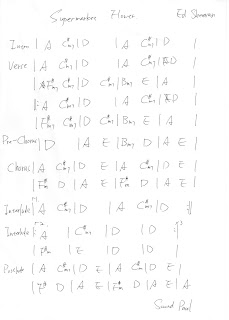 Supermarket Flower Ed Sheeran
Intro | A C#m | D | A C#m | D |
Verse | A C#m | D | A C#m | D
| F#m C#m | D C#m | Bm E | A |
| A C#m | D | A C#m | D
| F#m C#m | D C#m | Bm E | A |
Pre-Chorus | D | A E | Bm D | A E |
Chorus | A C#m | D E | A C#m | D E |
| F#m D | A E | F#m D | A E |
Interlude 1 | A C#m | D | A C#m | D
Interlude 2 | A | C#m | D | D |
| F#m | E | D | D |
| A C#m | D E | A C#m | D E |
| F#m D | A E | F#m D | A E | A